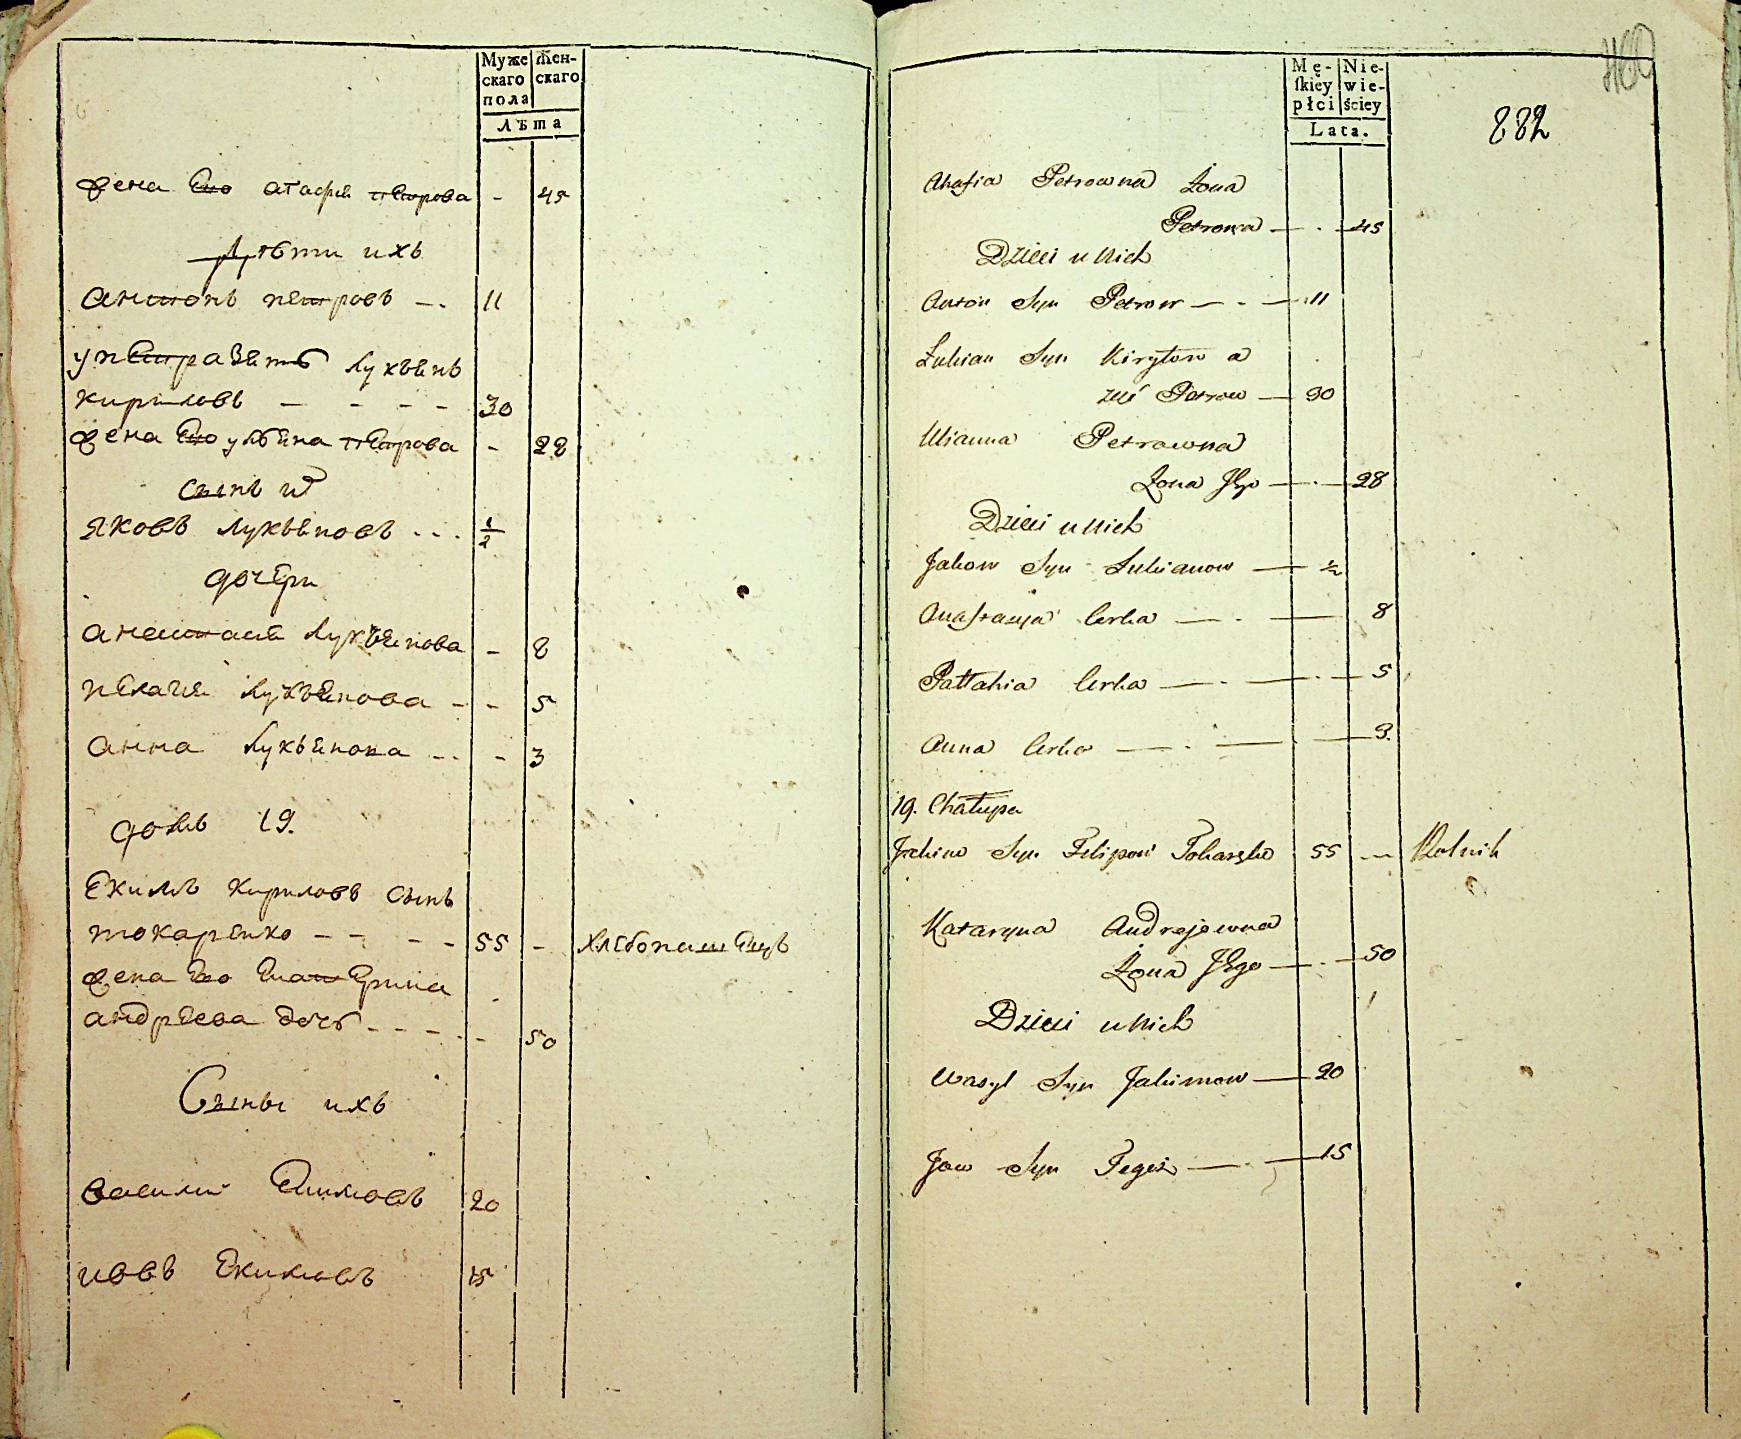 Муже Жен-
скаго скаго
пола
Лѣта
жена Ево агафия петрова - 45
Дѣти ихъ
антонъ петровъ - . 11
у петра Зять лукьянъ
кириловъ - - - - 30
жена Ево ульяна петрова - 28
сынъ их
яковъ лукьяновъ . . . 1/2
дочери
анастасия лукьянова - 8
пелагия лукьянова - - 5
анна лукьянова - - - 3
домъ 19.
Екимъ кириловъ сынъ
токаренко - - - - 55 - хлебопашецъ
жена Ево Екатерина
андреева дочь - - - - 50
Сыны ихъ
василий Екимовъ 20
иовъ Екимовъ 15
Mę- Nie-
ſkiey wie-
płci ściey
Lata.
882
Ahafia Petrowna Żona
Petrowa — . — 45
Dzieci u Nich
Anton Syn Petrow — - — 11
Łukian Syn Kiryłow a
zięć Petrow — 30
Ulianna Petrowna
Żona Jego — . — 28
Dzieci u Nich
Jakow Syn Łukianow — 1/2
Anastazya Corka — . — 8
Pałłahia Corka — . — . — 5
Anna Corka — . — . — 3.
19. Chałupa
Jakim Syn Filipow Tokarzko 55 — Rolnik
Kataryna Andrejowna
Żona Jego — . — 50
Dzieci u Nich
Wasyl Syn Jakimow — 20
Jow Syn Tegoż — . — 15